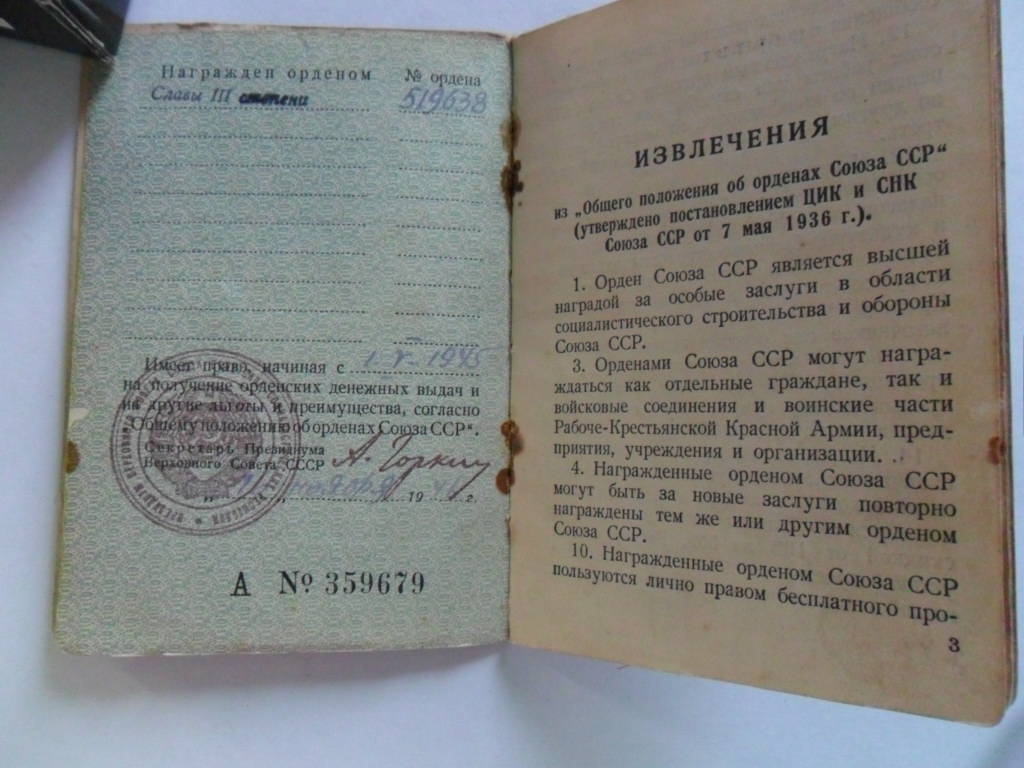 Награжден орденом № ордена
Славы III степени 519638
Имеет право, начиная с 1 V 1945
на получение орденских денежных выдач и
на другие льготы и преимущества, согласно
„Общему положению об орденах Союза ССР“.
Секретарь Президиума
Верховного Совета СССР А. Горкин
19 г.
А № 359679
ИЗВЛЕЧЕНИЯ
из „Общего положения об орденах Союза ССР“
(утверждено постановлением ЦИК и СНК
Союза ССР от 7 мая 1936 г.).
1. Орден Союза ССР является высшей
наградой за особые заслуги в области
социалистического строительства и обороны
Союза ССР.
3. Орденами Союза ССР могут награ-
ждаться как отдельные граждане, так и
войсковые соединения и воинские части
Рабоче-Крестьянской Красной Армии, пред-
приятия, учреждения и организации. . .
4. Награжденные орденом Союза ССР
могут быть за новые заслуги повторно
награждены тем же или другим орденом
Союза ССР.
10. Награжденные орденом Союза ССР
пользуются лично правом бесплатного про-
3